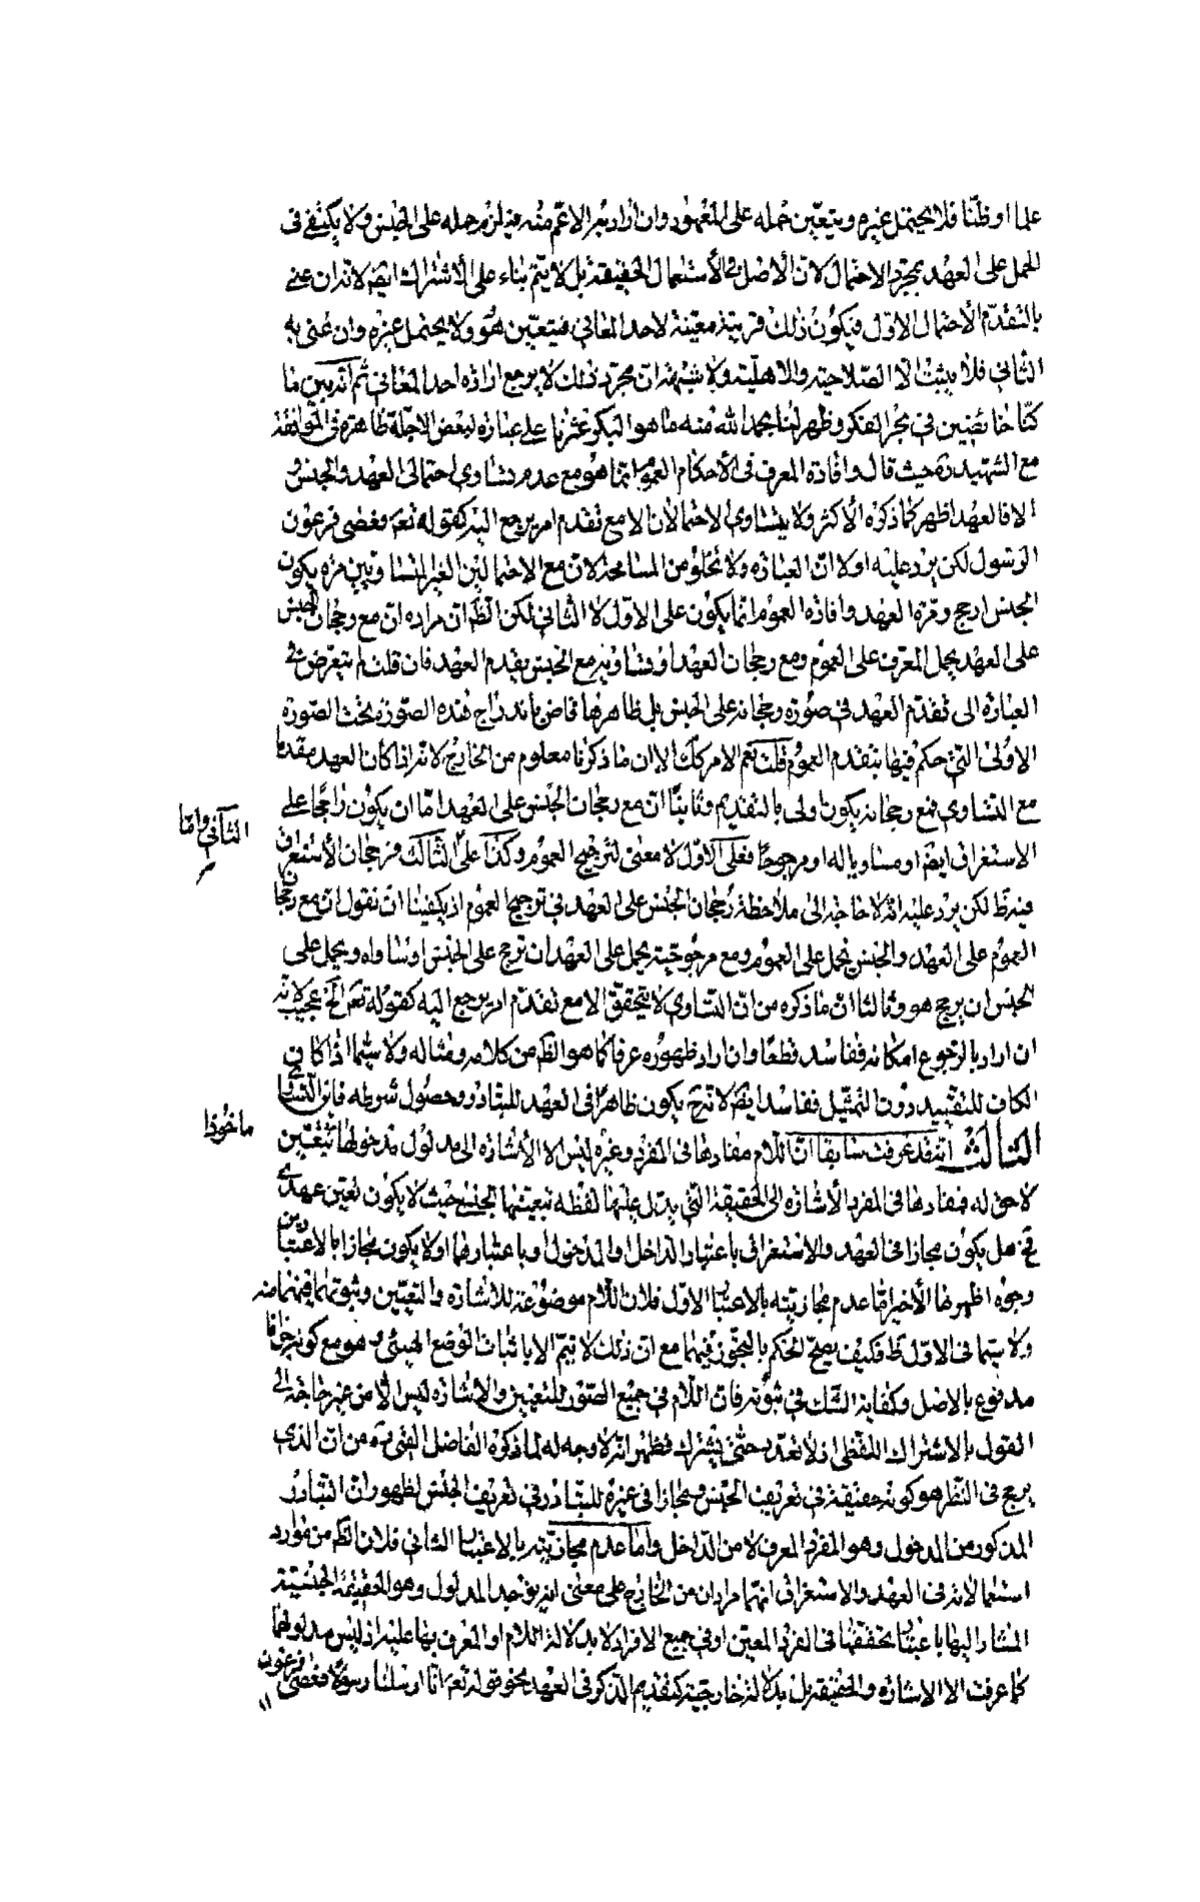 علما او ظنّا فلا يحتمل غيره ويتعيّن حمله على المعهود وان اراد به الاعمّ منه فيلزم حمله على الجنس ولا يكتفى فى
الحمل على العهد بمجرد الاحتمال لانّ الاصل فى الاستعمال الحقيقة بل لا يتمّ بناء على الاشتراك ايضا لانه ان عنى
بالتقدّم الاحتمال الاوّل فيكون ذلك قرينة معيّنة لاحد المعانى فيتعيّن هو ولا يحتمل غيره وان عنى به
الثانى فلا يثبت الّا الصّلاحيته والاهليّة ولا شبهة انّ مجرّد ذلك لا يرجع ارادة احد المعانى ثم انّه بين ما
كنّا خائضين فى بحر الفكر وظهر لنا بحمد الله منه ما هو البكر عثرنا على عبارة لبعض الاجلّة ظاهرة فى الموافقة
مع الشهيد ره حيث قال وافادة المعرف فى الاحكام العموم انّما هو مع عدم تساوى احتمالى العهد والجنس و
الا فالعهد اظهر كما ذكره الاكثر ولا يتساوى الاحتمالان الا مع تقدم امر يرجع اليه كقوله تعم فعصى فرعون
الرسول لكن يرد عليه اولا انّ العبارة ولا تخلو من المسامحة لانّ مع الاحتمالين الغير المتساويين مرة يكون
الجنس ارجح ومرّة العهد وافادة العموم انّما يكون على الاوّل لا الثانى لكن الظ انّ مراده انّ مع رجحان الجنس
على العهد يحمل المعرّف على العموم ومع رجحان العهد او تساويه مع الجنس يقدم العهد فان قلت لم يتعرّض فى
العبارة الى تقدّم العهد فى صورة رجحانه على الجنس بل ظاهرها قاض باندراج هذه الصّورة تحت الصّورة
الاولى التى حكم فيها بتقدم العموم قلت نعم الامر كك الا ان ما ذكرنا معلوم من الخارج لانّه اذا كان العهد مقدما
مع التساوى فمع رجحانه يكون اولى بالتقديم وثانيا انّ مع رجحان الجنس على العهد امّا ان يكون راجحا على
الاستغراق ايضا او مساويا له او مرجوحا فعلى الاوّل لا معنى لترجيح العموم وكذا على الثالث فرجحان الاستغراق
الثانى وامّا
فيه ظ لكن يرد عليه انّه لا حاجة الى ملاحظة رجحان الجنس على العهد فى ترجيح العموم اذ يكفينا ان نقول انّ مع رجحان
العموم على العهد والجنس يحمل على العموم ومع مرجوحيّته يحمل على العهد ان ترجح على الجنس او ساواه ويحمل على
الجنس ان يرجح هو وثالثا انّ ما ذكره من انّ التساوى لا يتحقق الا مع تقدّم امر يرجع اليه كقوله تعم الخ عجيب لانّه
ان اراد بالرجوع امكانه ففاسد قطعا وان اراد ظهوره عرفا كما هو الظ من كلامه ومثاله ولا سيّما اذا كان
الكاف للتقييد دون التمثيل ففاسد ايضا لانّه ح يكون ظاهرا فى العهد للتبادر وحصول شرطه فاين التساوى
ماخوذا
الثالث انّه قد عرفت سابقا انّ اللام مفادها فى المفرد وغيره ليس الا الاشارة الى مدلول مدخولها بتعيّن
لاحق له فمفادها فى المفرد الاشارة الى الحقيقة التى يدلّ عليها لفظه بتعيّنها الجنسى حيث لا يكون تعيّن عهدى
فح هل يكون مجازا فى العهد والاستغراق باعتبار الداخل والمدخول او باعتبارهما او لا يكون مجازا بالاعتبارين
وجوه اظهرها الأخير امّا عدم مجازيّته بالاعتبار الاوّل فلان اللّام موضوعة للاشارة والتعيّين وثبوتهما فيهما مسلم
ولا سيّما فى الاوّل ظ فكيف يصحّ الحكم بالتجوّز فيهما مع انّ ذلك لا يتم الا باثبات الوضع الجنسى وهو مع كونه خلافا
مدفوع بالاصل وكفاية الشّك فى ثبوته فانّ اللّام فى جميع الصّور للتعيين والاشارة ليس الّا من غير حاجة الى
القول بالاشتراك اللفظى اذ لا تعدّد حتّى يشترك فظهر انّه لا وجه له لما ذكره الفاضل القمى ره من انّ الذى
يرجح فى النّظر هو كونه حقيقة فى تعريف الجنس ومجازا فى غيره للتبادر فى تعريف الجنس لظهور انّ التبادر
المذكور من المدخول وهو المفرد المعرف لا من الدّاخل وامّا عدم مجازيّته بالاعتبار الثانى فلان الظ من موارد
استعمالاته فى العهد والاستغراق انّهما مرادان من الخارج على معنى انه يؤخذ المدلول وهو الحقيقة الجنسيّة
المشار اليها باعتبار تحققها فى الفرد المعيّن او فى جميع الافراد لا بدلالة اللام او المعرف بها عليه اذ ليس مدلولهما
كما عرفت الا الاشارة والحقيقة بل بدلالة خارجيّة كتقديم الذّكر فى العهد نحو قوله تعم انّا ارسلنا رسولا فعصى فرعون